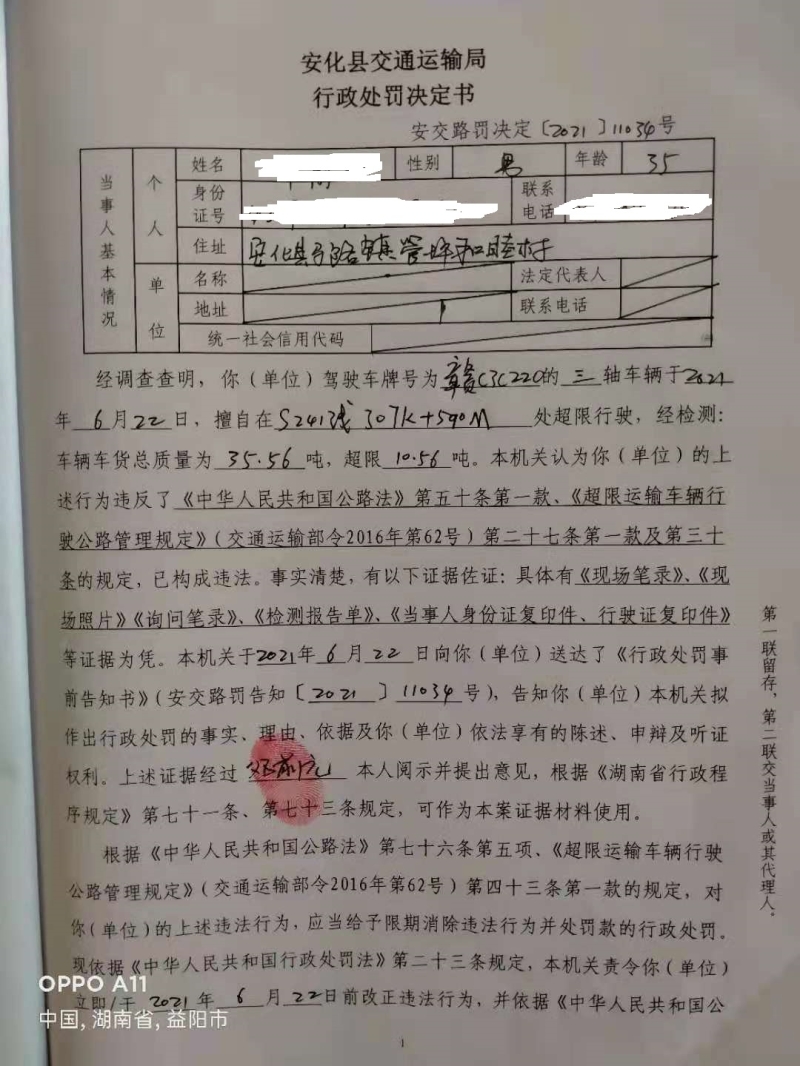 安化县交通运输局
行政处罚决定书
安交路罚决定〔2021〕11034号
当事人基本情况
个人
姓名
性别 男 年龄 35
身份证号
联系电话
住址 安化县马路镇管坪和睦村
单位
名称
法定代表人
地址
联系电话
统一社会信用代码
经调查查明，你（单位）驾驶车牌号为赣C3C220的三轴车辆于2021
年6月22日，擅自在S241线307K+590M处超限行驶，经检测：
车辆车货总质量为35.56吨，超限10.56吨。本机关认为你（单位）的上
述行为违反了《中华人民共和国公路法》第五十条第一款、《超限运输车辆行
驶公路管理规定》（交通运输部令2016年第62号）第二十七条第一款及第三十
条的规定，已构成违法。事实清楚，有以下证据佐证：具体有《现场笔录》、《现
场照片》《询问笔录》、《检测报告单》、《当事人身份证复印件、行驶证复印件》
等证据为凭。本机关于2021年6月22日向你（单位）送达了《行政处罚事
前告知书》（安交路罚告知〔2021〕11034号），告知你（单位）本机关拟
作出行政处罚的事实、理由、依据及你（单位）依法享有的陈述、申辩及听证
权利。上述证据经过 本人阅示并提出意见，根据《湖南省行政程
序规定》第七十一条、第七十三条规定，可作为本案证据材料使用。
根据《中华人民共和国公路法》第七十六条第五项、《超限运输车辆行驶
公路管理规定》（交通运输部令2016年第62号）第四十三条第一款的规定，对
你（单位）的上述违法行为，应当给予限期消除违法行为并处罚款的行政处罚。
现依据《中华人民共和国行政处罚法》第二十三条规定，本机关责令你（单位）
立即/于2021年6月22日前改正违法行为，并依据《中华人民共和国公
第一联留存，第二联交当事人或其代理人。
1
OPPO A11
中国, 湖南省, 益阳市